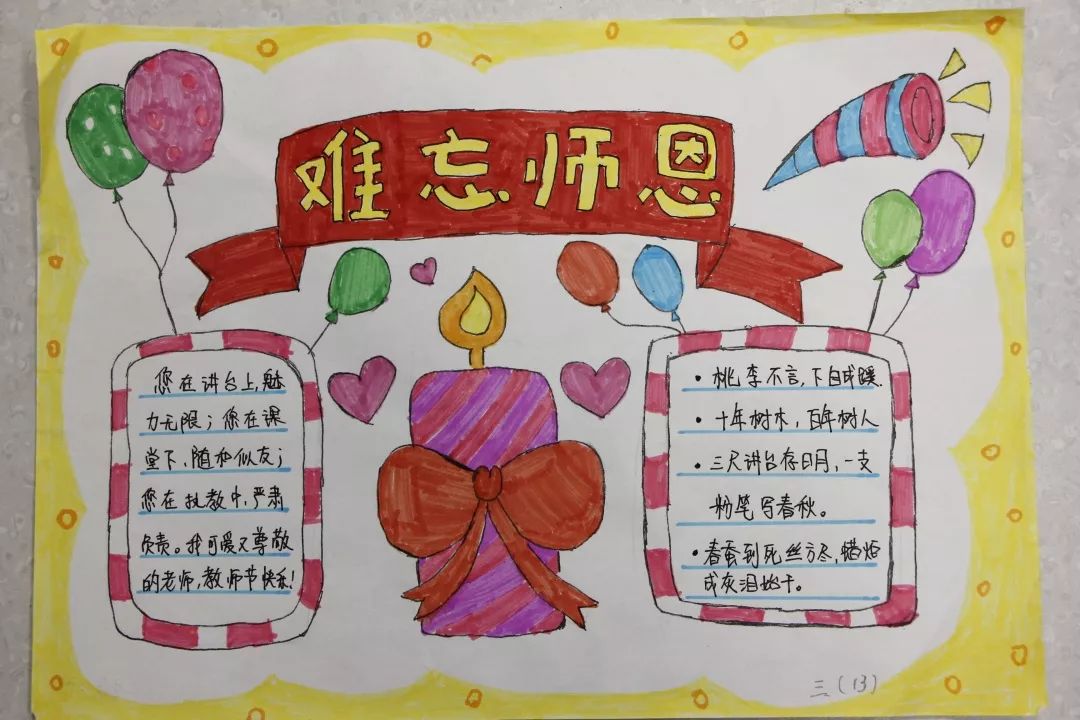 难忘师恩
您在讲台上,魅
力无限；您在课
堂下,随和似友；
您在执教中,严肃
负责。我可爱又尊敬
的老师,教师节快乐!
·桃李不言,下自成蹊.
·十年树木,百年树人
·三尺讲台存日月,一支
粉笔写春秋。
·春蚕到死丝方尽,蜡炬
成灰泪始干。
三(13)